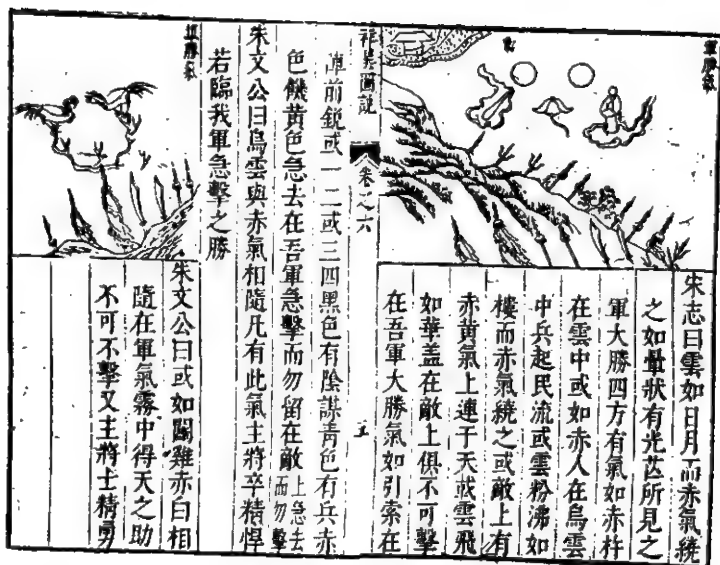 軍勝氣
宋志曰雲如日月而赤氣繞
之如暈狀有光芒所見之
軍大勝四方有氣如赤杵
在雲中或如赤人在烏雲
中兵起民流或雲粉沸如
樓而赤氣繞之或敵上有
赤黃氣上連于天或雲飛
如華盖在敵上俱不可擊
在吾軍大勝氣如引索在
祥異圖說
卷之六
五
陣前銳或一二或三四黑色有陰謀青色有兵赤
色饑黃色急去在吾軍急擊而勿留在敵上急去而勿擊
朱文公曰烏雲與赤氣相隨凡有此氣主將卒精悍
若臨我軍急擊之勝
軍勝氣
朱文公曰或如鬬雞赤白相
隨在軍氣霧中得天之助
不可不擊又主將士精勇